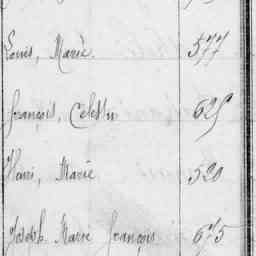 Louis, Marie. 577
François, Célestin 525
Henri, Marie 520
Joseph Marie François 675